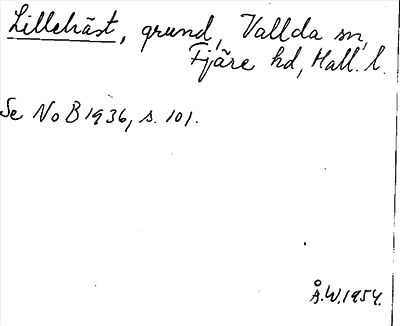 Lillehäst, grund, Vallda sn,
Fjäre hd, Hall. l.
Se NoB 1936, s. 101.
Å.W.1954.